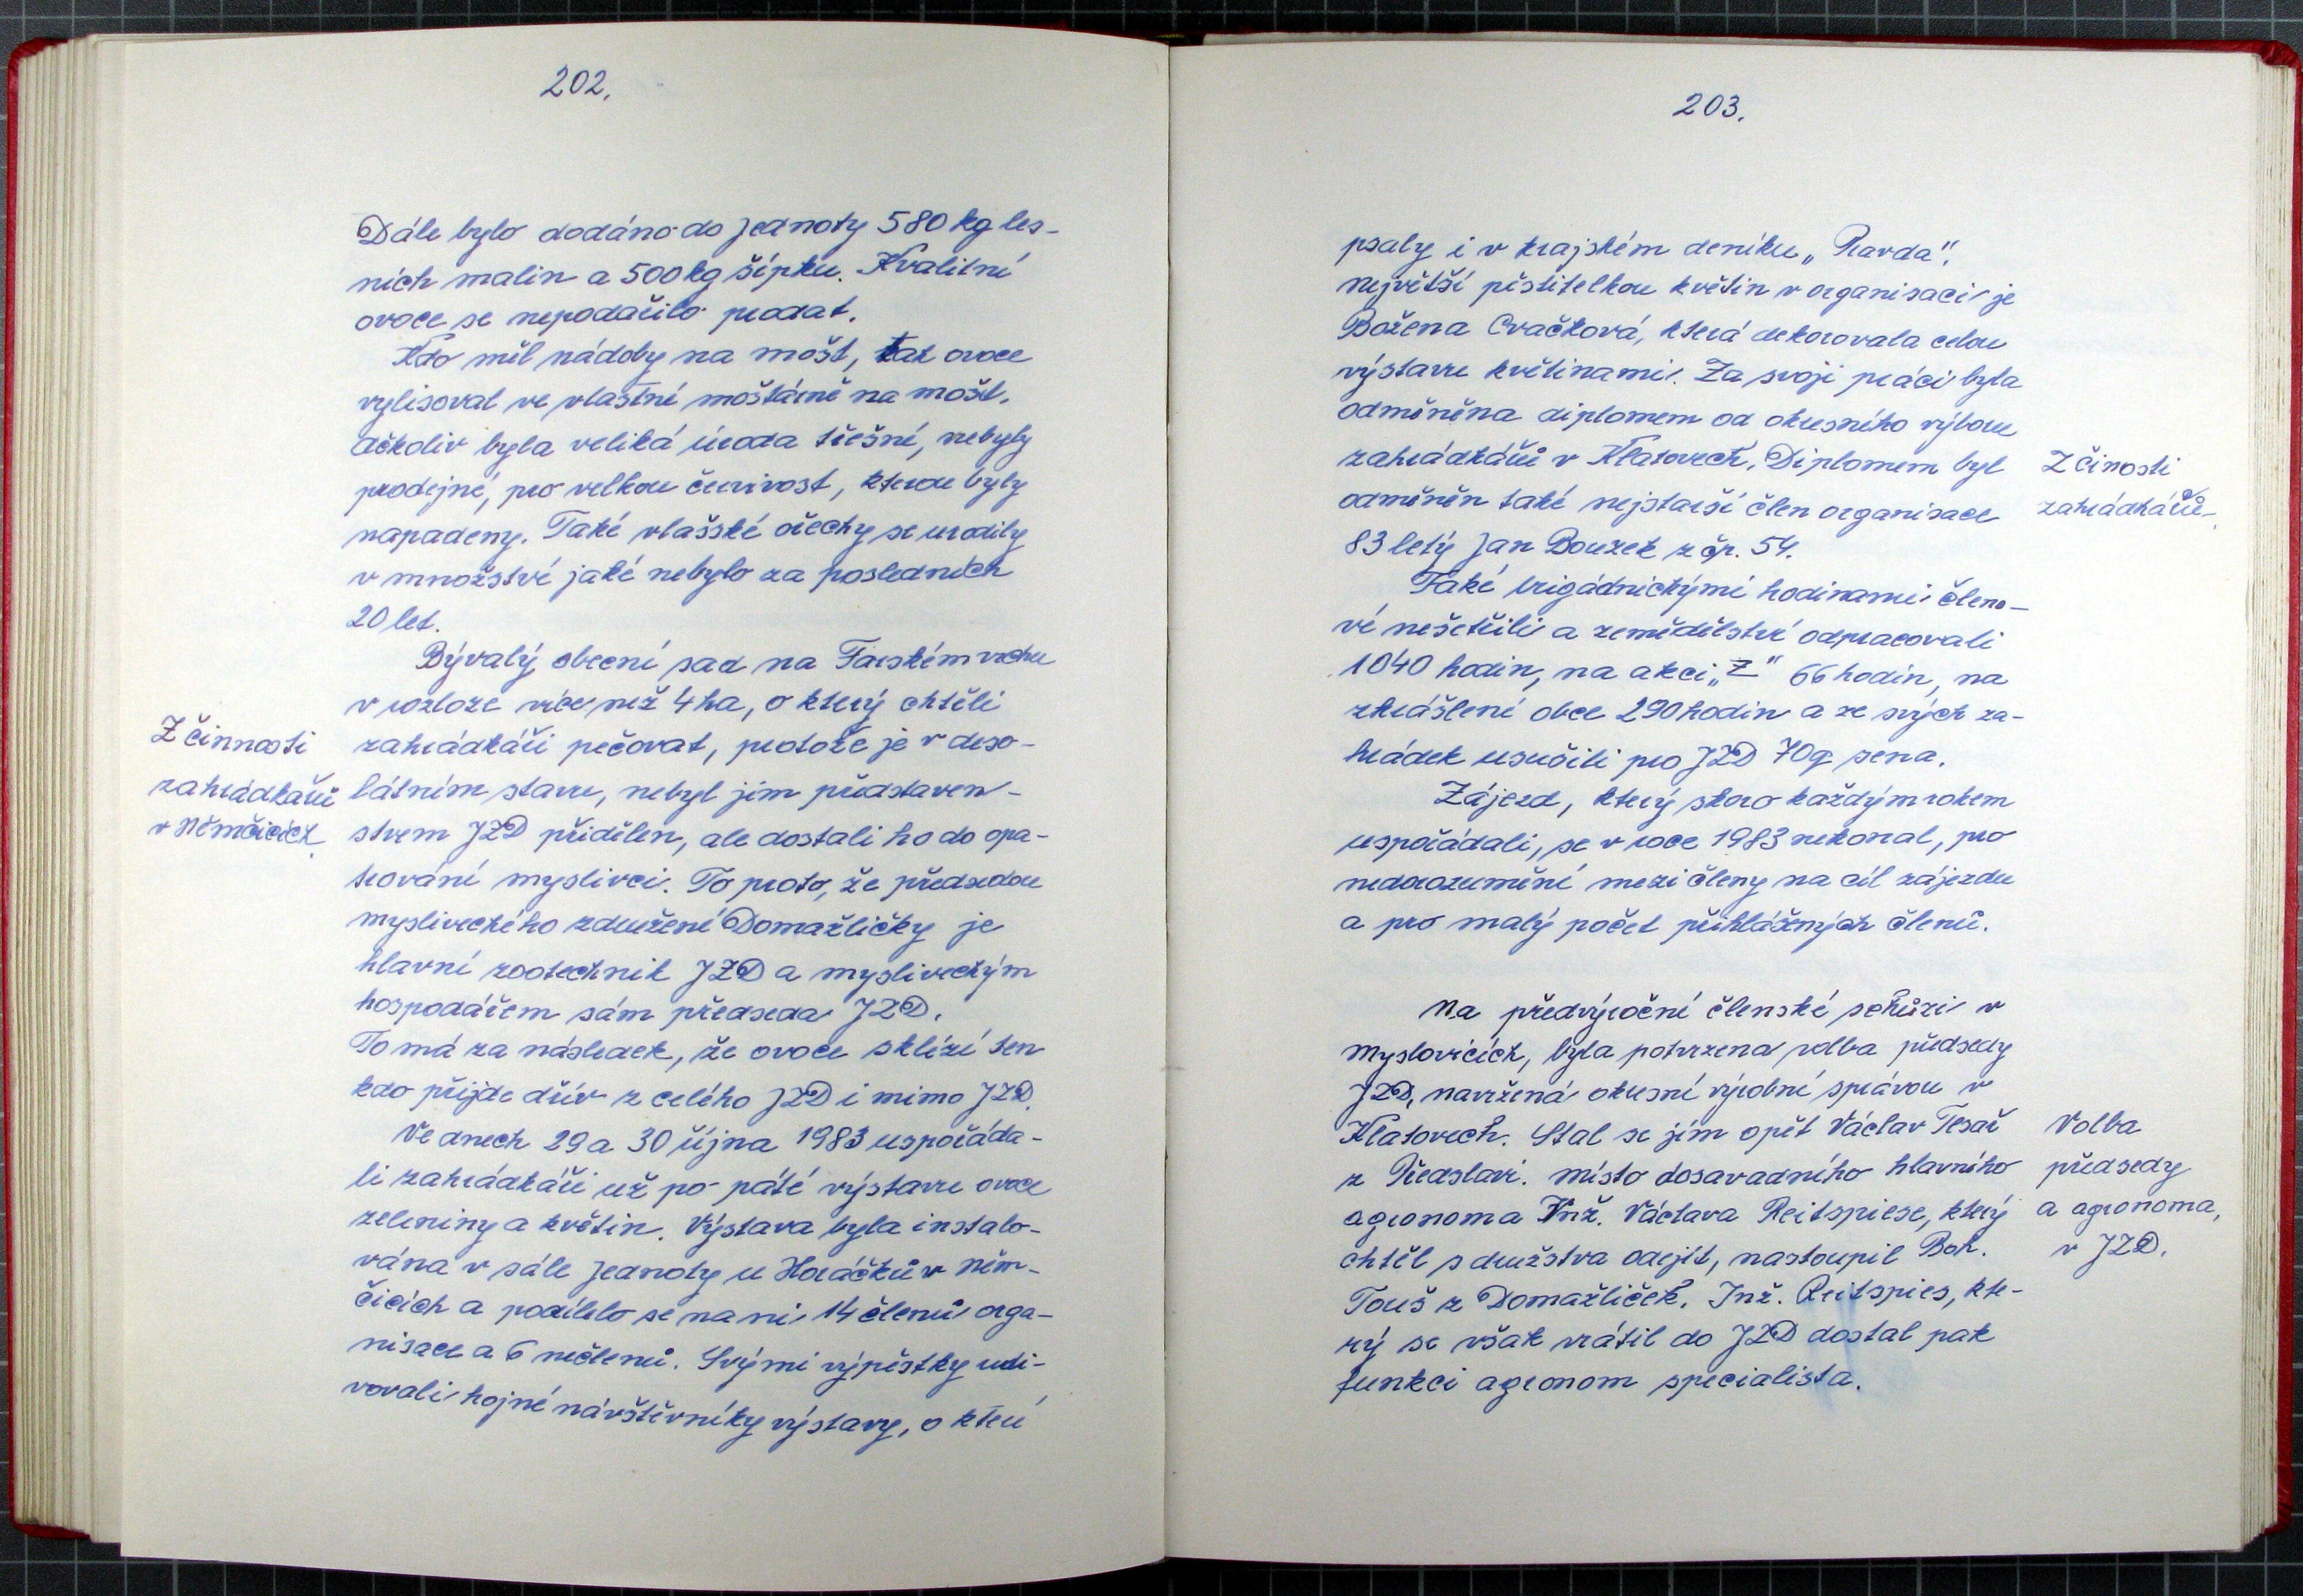 202.
Dále bylo dodáno do Jednoty 580 kg les-
ních malin a 500 kg šípku. Kvalitní
ovoce se nepodařilo prodat.
Kdo měl nádoby na mošt, tak ovoce
vylisoval ve vlastní moštárně na mošt.
Ačkoliv byla veliká úroda třešní, nebyly
prodejné, pro velkou červivost, kterou byly
napadeny. Také vlašské ořechy se urodily
v množství jaké nebylo za posledních
20 let.
Bývalý obecní sad na Farském vrchu
v rozloze více než 4 ha, o který chtěli
zahrádkáři pečovat, protože je v deso-
látním stavu, nebyl jim představen-
stvem JZD přidělen, ale dostali ho do opa-
trování myslivci. To proto, že předsedou
mysliveckého združení Domažličky je
hlavní zootechnik JZD a mysliveckým
hospodářem sám předseda JZD.
To má za následek, že ovoce sklízí ten
kdo přijde dřív z celého JZD i mimo JZD.
Ve dnech 29 a 30 října 1983 uspořáda-
li zahrádkáři už po páté výstavu ovoce
zeleniny a květin. Výstava byla instalo-
vána v sále Jednoty u Horáčků v Něm-
čicích a podílelo se na ni 14 členů orga-
nisace a 6 nečlenů. Svými výpěstky udi-
vovali hojné návštěvníky výstavy, o které
Z činnosti
zahrádkářů
v Němčicích.
203.
psaly i v krajském deníku „Pravda".
největší pěstitelkou květin v organisaci je
Božena Cvačková, která dekorovala celou
výstavu květinami. Za svoji práci byla
odměněna diplomem od okresního výboru
zahrádkářů v Klatovech. Diplomem byl
odměněn také nejstarší člen organisace
83 letý Jan Bouzek z čp. 54.
Také brigádnickými hodinami členo-
vé nešetřili a zemědělství odpracovali
1040 hodin, na akci „Z" 66 hodin, na
zkrášlení obce 290 hodin a ze svých za-
hrádek usušili pro JZD 70q sena.
Zájezd, který skoro každým rokem
uspořádali, se v roce 1983 nekonal, pro
nedorozumění mezi členy na cíl zájezdu
a pro malý počet přihlášených členů.
Z činosti
zahrádkářů.
Na předvýroční členské schůzi v
Myslovicích, byla potvrzena volba předsedy
JZD, navržená okresní výrobní správou v
Klatovech. Stal se jím opět Václav Tesař
z Předslavi. místo dosavadního hlavního
agronoma Inž. Václava Reitspiese, který
chtěl s družstva odejít, nastoupil Boh.
Touš z Domažliček. Inž. Reitspies, kte-
rý se však vrátil do JZD dostal pak
funkci agronom specialista.
Volba
předsedy
a agronoma,
v JZD.